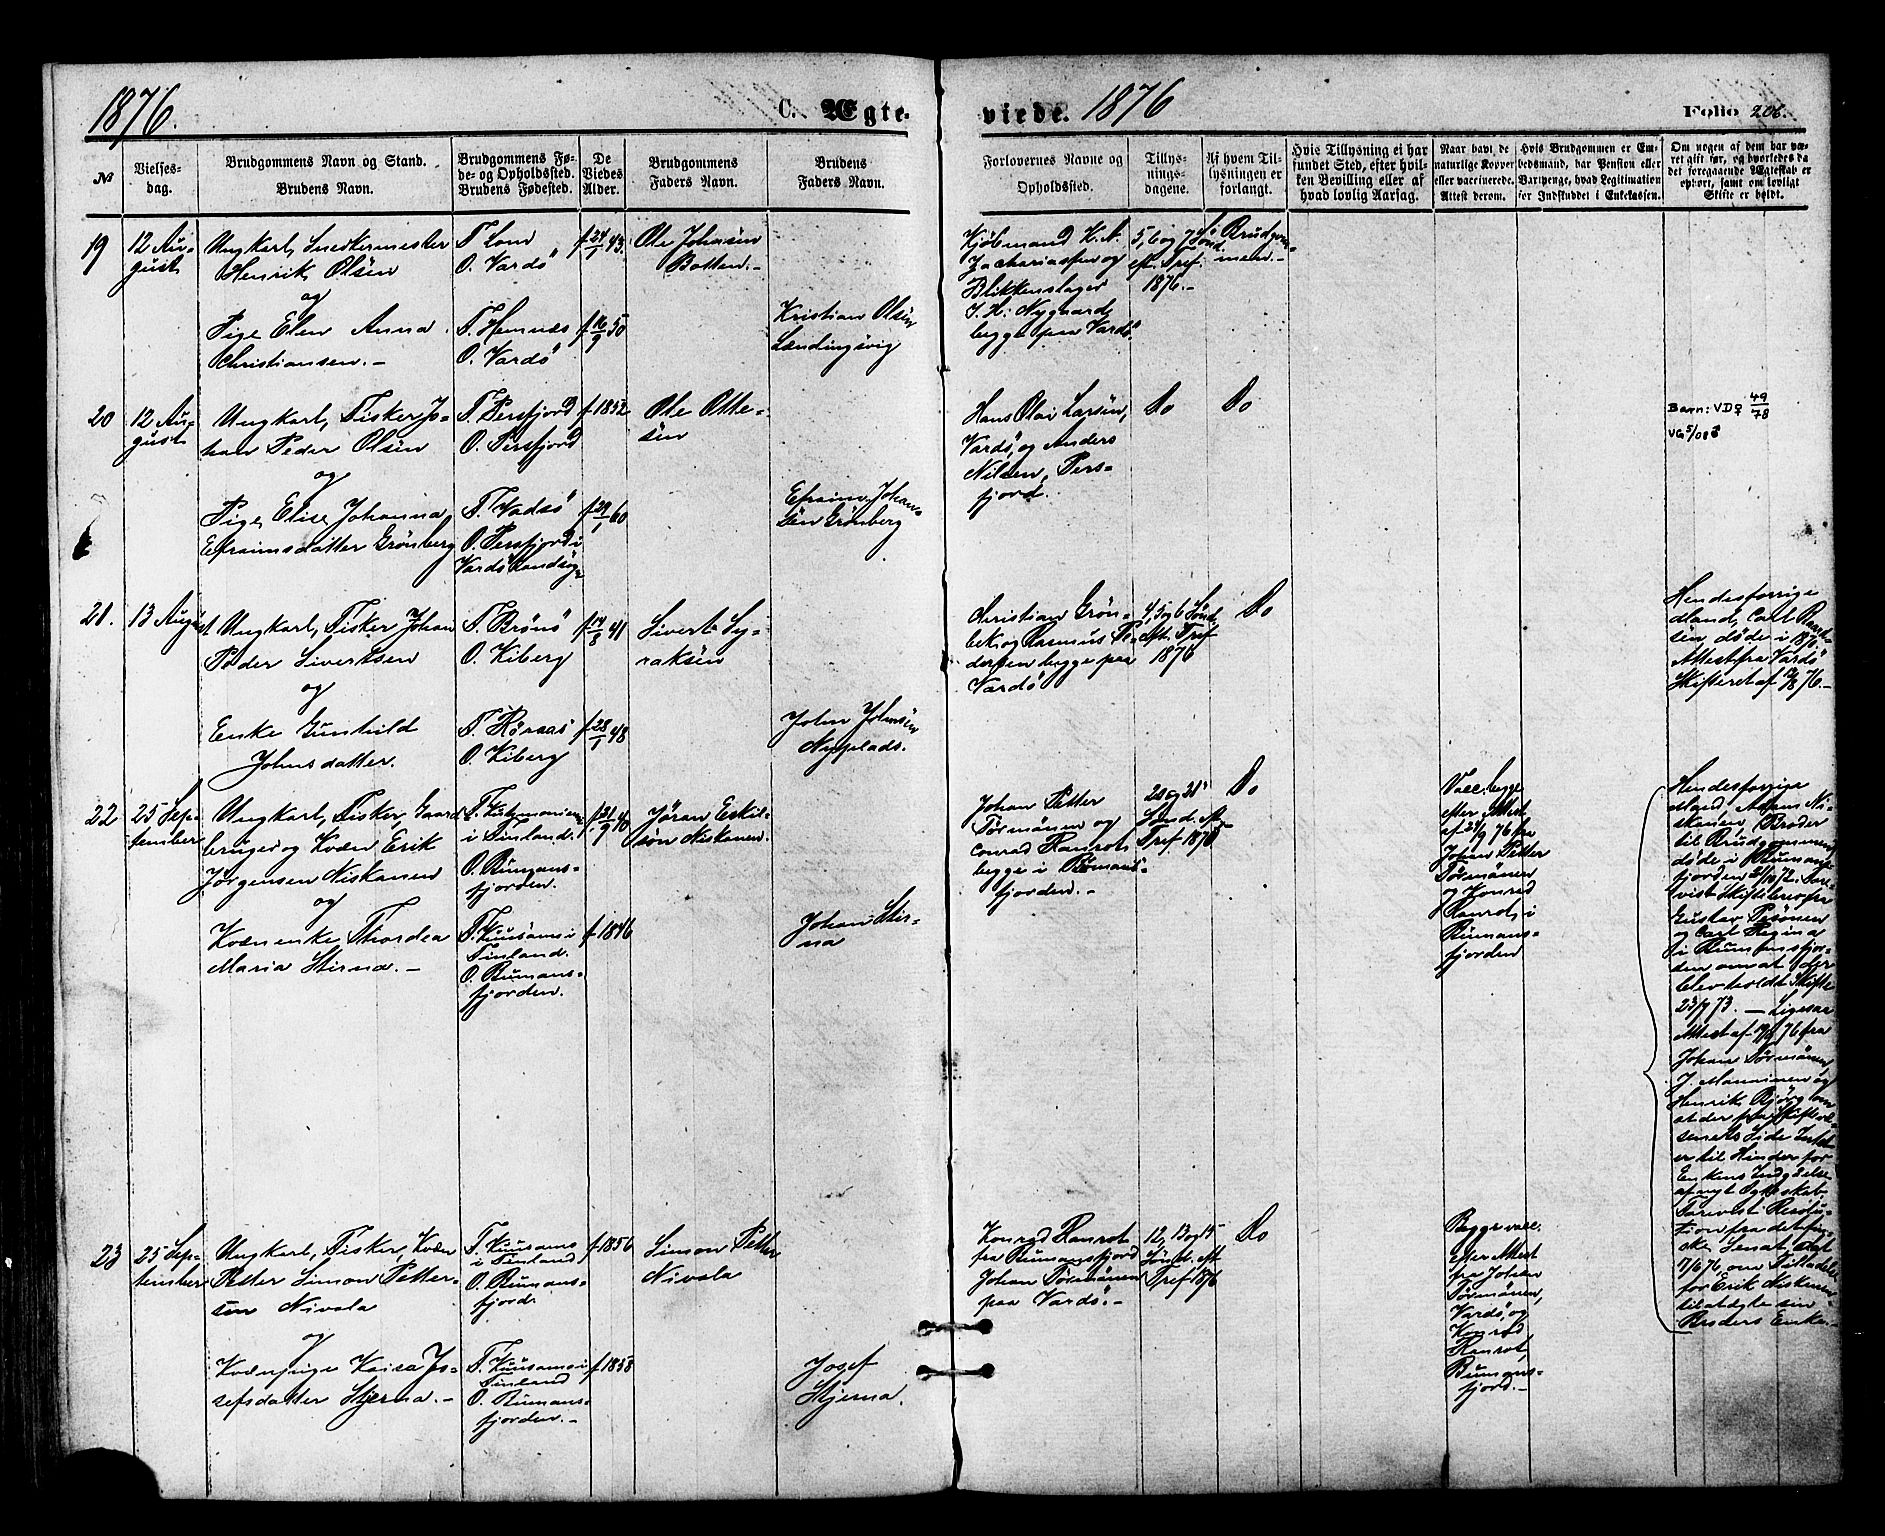 1876.
C. Ægte-
viede. 1876
Folio 206.
№
Vielses-
dag.
Brudgommens Navn og Stand.
Brudens Navn.
Brudgommens Fø-
de- og Opholdssted.
Brudens Fødested.
De
Viedes
Alder.
Brudgommens
Faders Navn.
Brudens
Faders Navn.
Forlovernes Navne og
Opholdssted.
Tillys-
nings-
dagene.
Af hvem Til-
lysningen er
forlangt.
Hvis Tillysning ei har
fundet Sted, efter hvil-
ken Bevilling eller af
hvad lovlig Aarsag.
Naar havt de
naturlige Kopper
eller vaccinerede.
Attest derom.
Hvis Brudgommen er Em-
bedsmand, har Pension eller
Vartpenge, hvad Legitimation
for Indskuddet i Enkekassen.
Om nogen af dem har væ-
ret gift før, og hvorledes da
det foregaaende Ægteskab er
ophørt, samt om lovligt
Skifte er holdt.
19
12 Au-
gust
Ungkarl, Snedkermester
Henrik Olsen
og
Pige Elen Anna
Christiansen.-
F. Lom
O. Vardö
F. Hemnæs
O. Vardö
f. 24/1 43.
f. 16/9 50
Ole Johansen
Botten.-
Kristian Olsen
Lændingsvig
Kjöbmand K. A.
Zachariassen og
Blikkenslager
J. K. Nygaard,
begge paa Vardö.
5, 6 og 7 Sönd.
eft. Tref.
1876.-
Brudgom-
men.-
20
12 Au-
gust
Ungkarl, Fisker Jo-
han Peder Olsen
og
Pige Elise Johanna
Efraimsdatter Grønberg
F. Persfjord
O. Persfjord
F. Vadsö
O. Persfjord i
Vardö Landsogn
f. 1852
f. 29/1 60
Ole Otte-
sen
Efraim Johan-
sen Grønberg
Hans Olai Larsen,
Vardö, og Anders
Nilsen, Pers-
fjord.
Do
Do
Barn: VD♀ 49/78
VG 5/08♂
21.
13 August
Ungkarl, Fisker Johan
Peder Sivertsen
og
Enke Gunhild
Johnsdatter.
F. Brönö
O. Kiberg
F. Röraas
O. Kiberg
f. 14/8 41
f. 28/1 48
Sivert Sy-
raksen
John Johnsen
Nyplads.
Christian Grön-
bek og Rasmus Pe-
dersen begge paa
Vardö
4, 5 og 6 Sönd.
eft. Tref
1876
Do
Hendes forrige
Mand, Carl
döde i
Attest fra Vardö
Skifteret af 12/8 76.-
22
25 Sep-
tember
Ungkarl, Fisker, Gaard-
bruger og Kvæn Erik
Jörgensen Niskanen
og
Kvænenke Thordea
Maria Stirna.-
i Finland.
O. Bumans-
fjorden.
F. Kuusamo i
Finland.
O. Bumans-
fjorden.
f. 21/9 40
f. 1846
Jöran Eskil-
son Niskanen.
Johan Stir-
na
Johan Petter
Törmänen og
Conrad Ranrot,
begge i Bumans-
fjorden.-
20 og 21
Sönd. eft.
Tref 1876
Do
Vacc. begge
efter Attest
af 24/9 76 fra
Johan Petter
Törmänen
og Konrad
Ranrot, i
Bumans-
fjorden
Hendes forrige
Mand, Adam Ni-
skanen, Broder
til Brudgommen,
döde i Bumans-
fjorden
Gustav Pesönen
og Carl Regina
i Bumansfjor-
den om at der
blev holdt Skifte
23/9 73. - Ligesaa
Attest af fra
Johan Törmänen,
J. Manninen og
Henrik Björg om
at der fra Skiftevæ-
senets Side Intet
er til Hinder for
Enkens Indgaaelse
af nyt Ægteskab.
Forevist Resolu-
tion fra det fin-
ske Senat dat
7/6 76, om Tilladelse
for Erik Niskanen
til at ægte sin
Broders Enke.-
23
25 Sep-
tember
Ungkarl, Fisker, Kvæn
Petter Simon Petter-
sen Nivala
og
Kvænpige Kaisa Jo-
sefsdatter Stjerna.-
F. Kuusamo
i Finland
O. Bumans-
fjord.
F. Kuusamo i
Finland
O. Bumans-
fjorden.-
f. 1856
f. 1858
Simon Petter
Nivala
Josef
Stjerna.
Konrad Ranrot
fra Bumansfjord
Johan Törmänen
paa Vardö.-
12, 13 og 15
Sönd. eft.
Tref 1876
Do
Begge vacc.
efter Attest
fra Johan
Törmänen,
Vardö, og
Konrad
Ranrot,
Bumans-
fjord.-